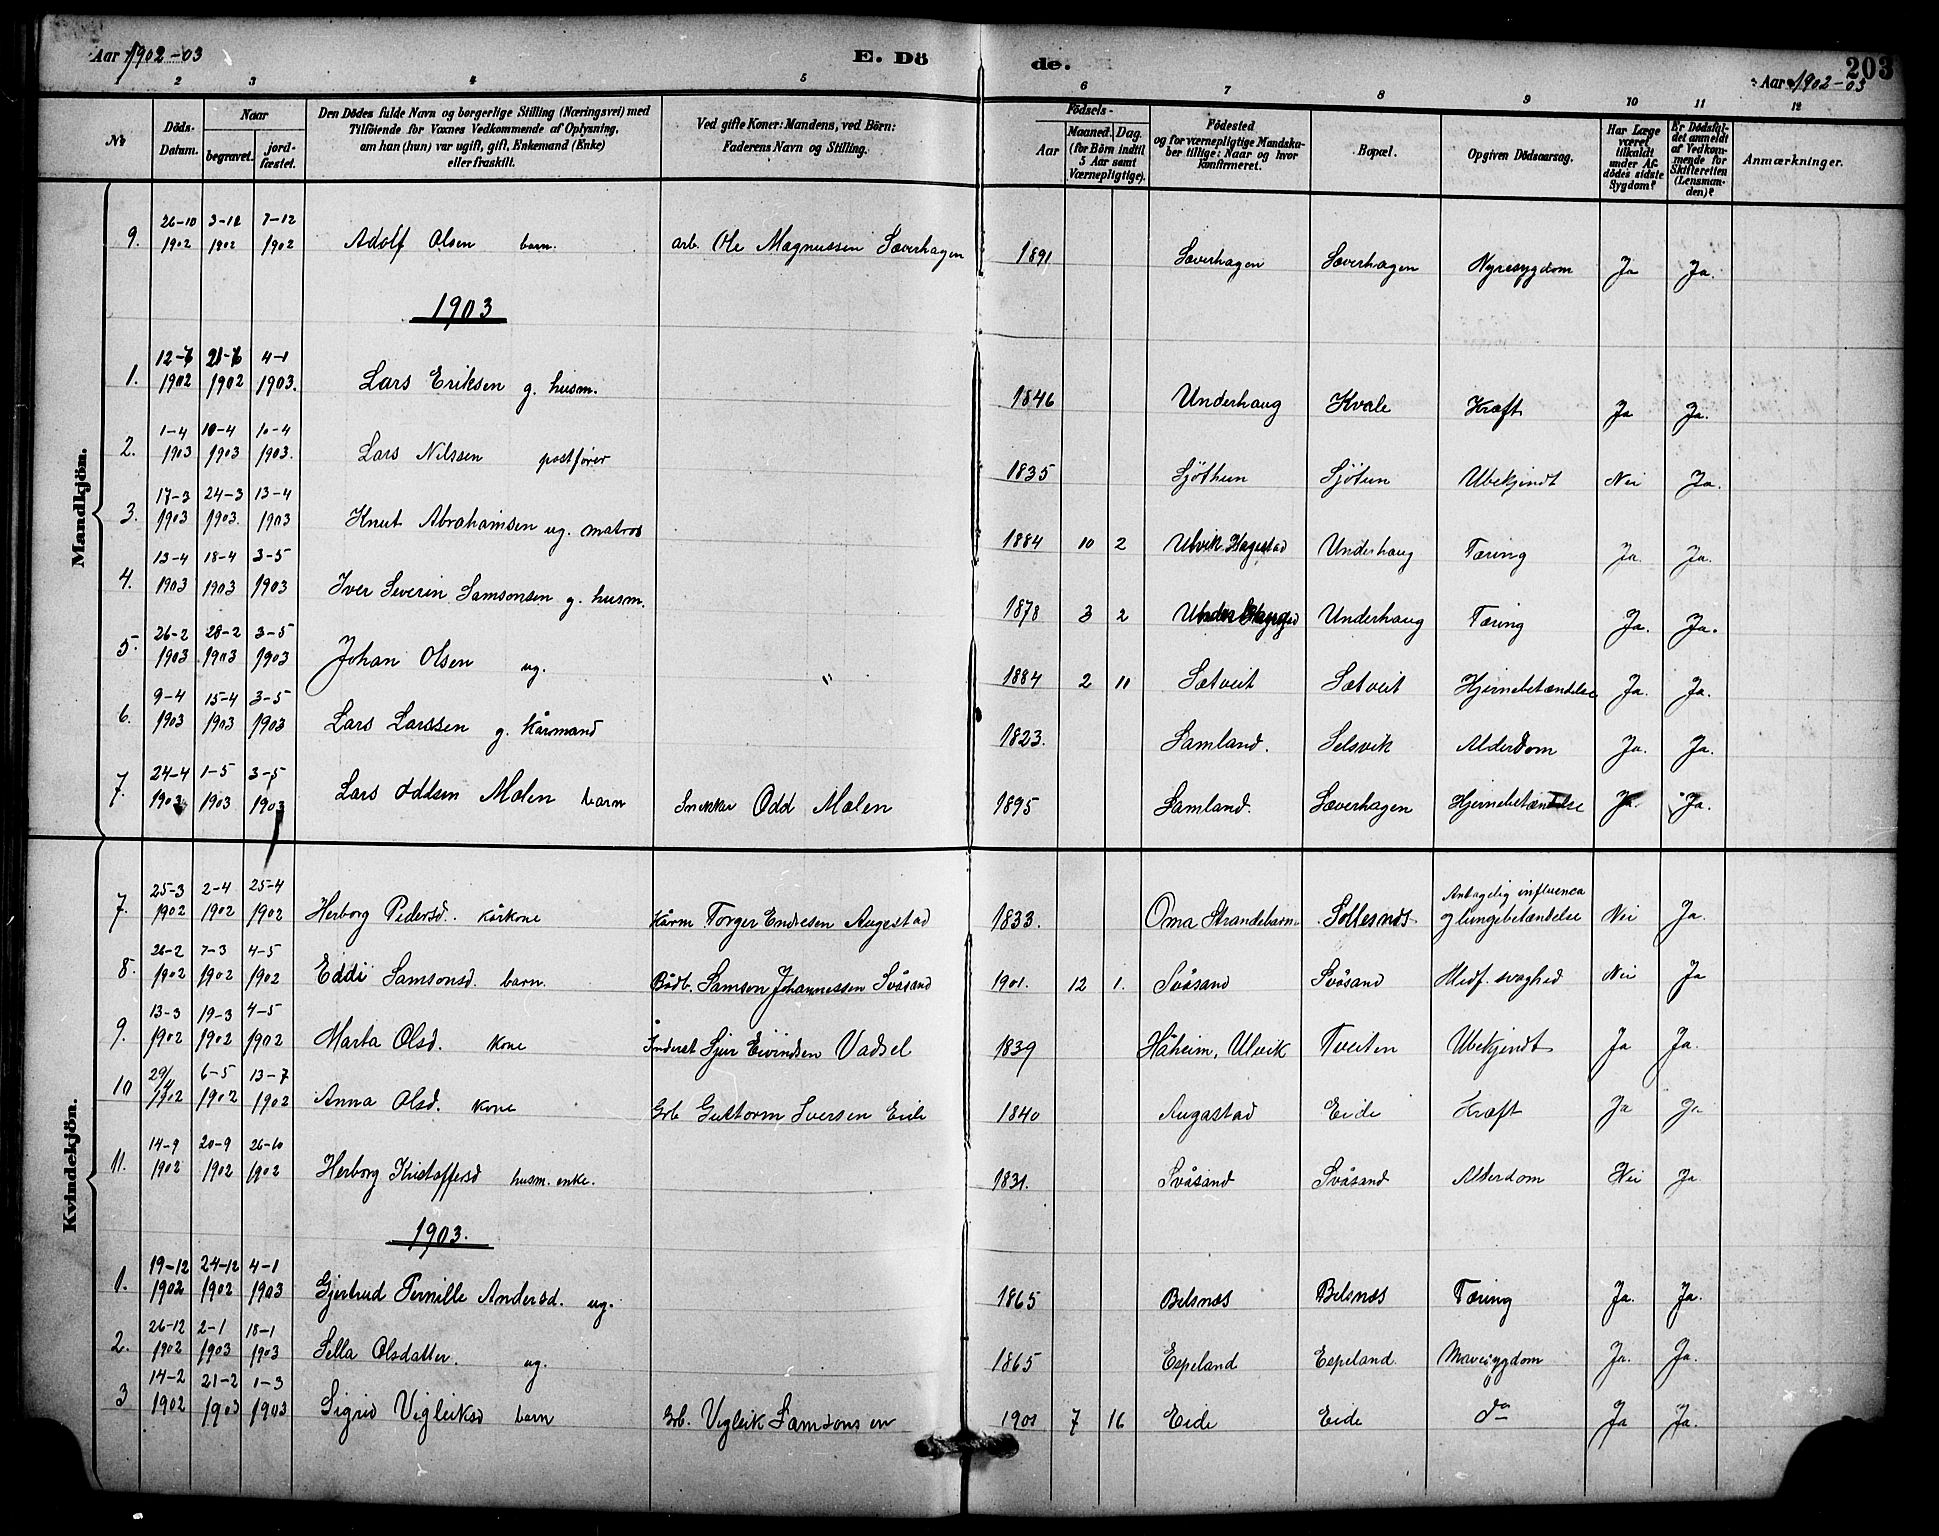 Aar 1902-03 E. Dö de. Aar 1902-03 203
1 2 3 4 5 6 7 8 9 10 11 12
No Döds-Datum. Naar begravet. jordfæstet. Den Dödes fulde Navn og borgerlige Stilling (Næringsvei) med Tilföiende for Voxnes Vedkommende af Oplysning, om han (hun) var ugift, gift, Enkemand (Enke) eller fraskilt. Ved gifte Koner: Mandens, ved Börn: Faderens Navn og Stilling. Födsels- Aar Maaned. Dag. (for Börn indtil 5 Aar samt Værnepligtige). Födested og for værnepligtige Mandskaber tillige: Naar og hvor konfirmeret. Bopæl. Opgiven Dödsaarsag. Har Læge været tilkaldt under Afdödes sidste Sygdom? Er Dödsfaldet anmeldt af Vedkommende for Skifteretten (Lensmanden)? Anmærkninger.
Mandkjön.
9. 26-10 1902 3-12 1902 7-12 1902 Adolf Olsen barn. arb. Ole Magnussen Sæverhagen 1891 Sæverhagen Sæverhagen Nyresygdom Ja Ja.
1903
1. 12-6 1902 21-6 1902 4-1 1903. Lars Eriksen g. husm. 1846 Underhaug Kvale Kræft Ja Ja.
2. 1-4 1903 10-4 1903 10-4 1903. Lars Nilssen postfører 1835 Sjøthun Sjøtun Ubekjendt Nei Ja.
3. 17-3 1903 24-3 1903. 13-4 1903 Knut Abrahamsen ug. matros 1884 10 2 Ulvik Hagestad Underhaug Tæring Ja. Ja.
4. 13-4 1903 18-4 1903 3-5 1903 Iver Severin Samsonsen g. husm. 1878 3 2 Underhaug Tæring Ja. Ja.
5. 26-2 1903 28-2 1903 3-5 1903 Johan Olsen ug. " 1884 2 11 Sætveit Sætveit Hjernebetændelse Ja. Ja.
6. 9-4 1903 15-4 1903 3-5 1903 Lars Larssen g. kårmand 1823. Samland. Selsvik Alderdom Ja. Ja.
7. 24-4 1903 1-5 1903 3-5 1903 Lars Oddsen Mælen barn Snekker Odd Mælen 1895 Samland. Sæverhagen Hjernebetændelse Ja. Ja.
Kvindekjön.
7. 25-3 1902 2-4 1902 25-4 1902 Herborg Pedersd. kårkone kårm Torger Endresen Augestad 1833. Oma Strandebarm Sollesnæs Antagelig influenca og lungebetændelse Nei Ja.
8. 26-2 1902 7-3 1902 4-5 1902 Eddi Samsonsd. barn. Bådb. Samson Johannessen Svåsand 1901. 12 1. Svåsand Svåsand Medf. svaghed Nei Ja
9. 13-3 1902 19-3 1902 4-5 1902 Marta Olsd. kone Inderst Sjur Eivindsen Vadsel 1839 Håheim, Ulvik Tveiten Ubekjendt Ja Ja.
10 29/4 1902 6-5 1902 13-7 1902 Anna Olsd. kone Grb Guttorm Iversen Eide 1840 Augastad Eide Kræft Ja Ja
11. 14-9 1902 20-9 1902 26-10 1902 Herborg Kristoffersd husm. enke. 1831. Svåsand Svåsand Alderdom Nei Ja
1903.
1. 19-12 1902 24-12 1902 4-1 1903 Gjertrud Pernille Andersd. ug. 1865 Belsnæs Belsnæs Tæring Ja. Ja.
2. 26-12 1902 2-1 1903 18-1 1903 Sella Olsdatter. ug. 1865 Espeland Espeland Mavesygdom Ja. Ja.
3 14-2 1902 21-2 1903 1-3 1903 Sigrid Vigleiksd barn Grb. Vigleik Samsonsen 1901 7 16 Eide Eide do Ja Ja.